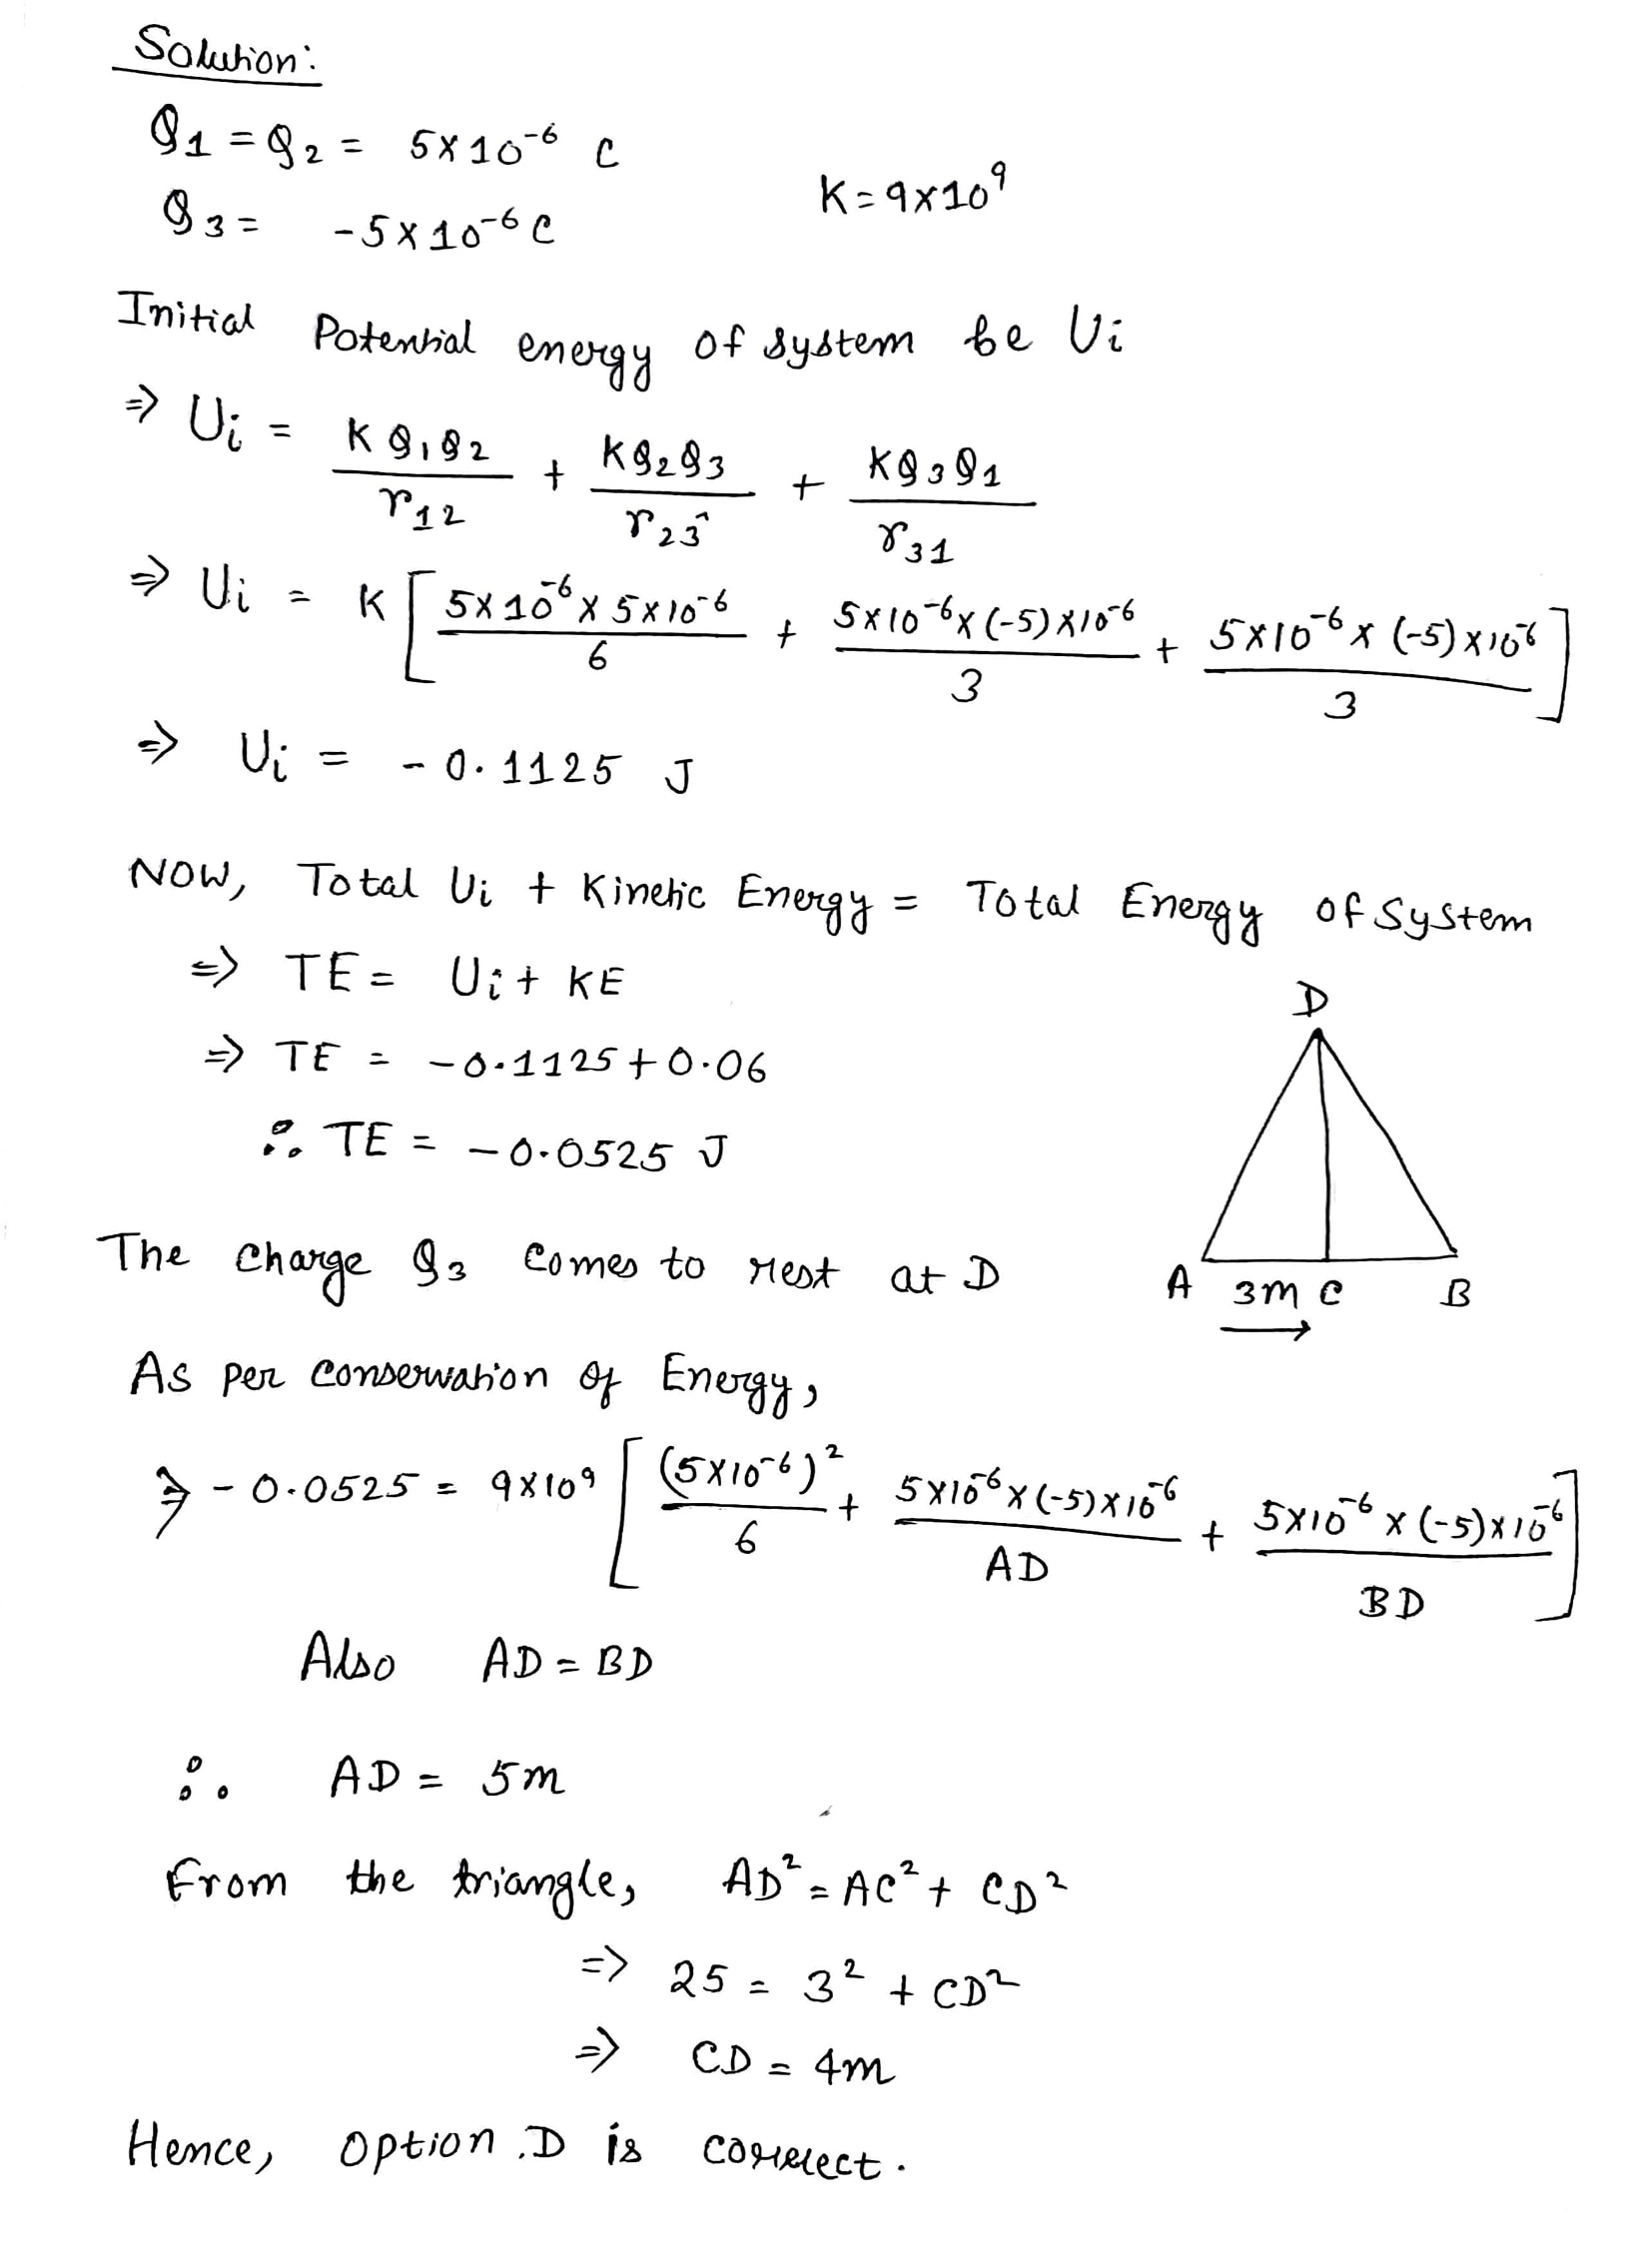 Solution:
Q1 = Q2 = 5×10⁻⁶ C
K = 9×10⁹
Q3 = -5×10⁻⁶ C
Initial Potential energy of system be Ui
⇒ Ui = KQ1Q2/r12 + KQ2Q3/r23 + KQ3Q1/r31
⇒ Ui = K[5×10⁻⁶×5×10⁻⁶/6 + 5×10⁻⁶×(-5)×10⁻⁶/3 + 5×10⁻⁶×(-5)×10⁻⁶/3]
⇒ Ui = -0.1125 J
NOW, Total Ui + Kinetic Energy = Total Energy of System
⇒ TE = Ui + KE
⇒ TE = -0.1125 + 0.06
∴ TE = -0.0525 J
D
A 3m C B
→
The charge Q3 comes to rest at D
As per conservation of Energy,
⇒ -0.0525 = 9×10⁹ [(5×10⁻⁶)²/6 + 5×10⁻⁶×(-5)×10⁻⁶/AD + 5×10⁻⁶×(-5)×10⁻⁶/BD]
Also AD = BD
∴ AD = 5m
From the triangle, AD² = AC² + CD²
⇒ 25 = 3² + CD²
⇒ CD = 4m
Hence, option .D is correct.